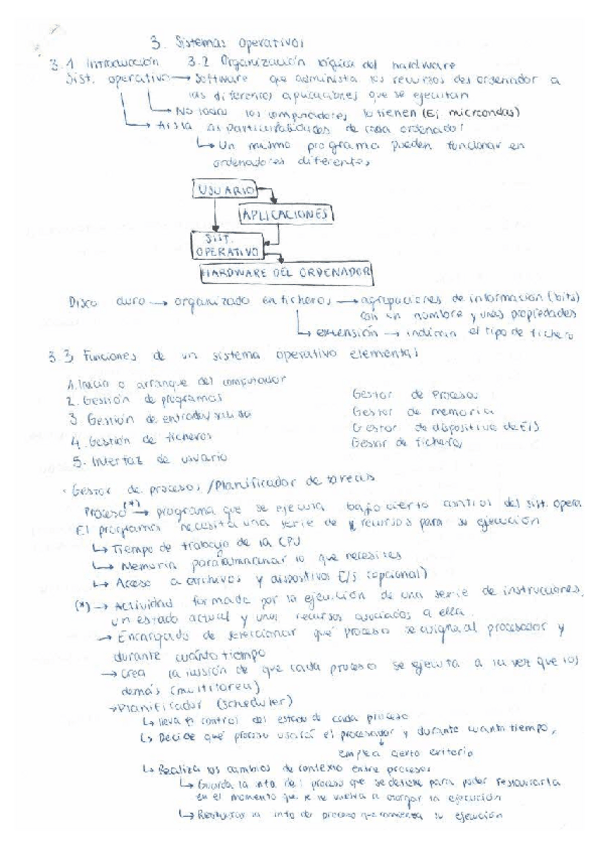 3. Sistemas operativos
3.1 Introducción 3.2 Organización lógica del hardware
Sist. operativo → Software que administra los recursos del ordenador a
las diferentes aplicaciones que se ejecutan
↳ No todos los computadores lo tienen (Ej microondas)
↳ Aisla las particularidades de cada ordenador:
↳ Un mismo programa pueden funcionar en
ordenadores diferentes
USUARIO
APLICACIONES
SIST.
OPERATIVO
HARDWARE DEL ORDENADOR
Disco duro → organizado en ficheros → agrupaciones de información (bits)
con un nombre y unas propiedades
↳ extensión → indican el tipo de fichero
3.3 Funciones de un sistema operativo elemental
1. Inicio o arranque del computador
2. Gestión de programas Gestor de procesos
3. Gestión de entradas/salidas Gestor de memoria
4. Gestión de ficheros Gestor de dispositivos de E/S
5. Interfaz de usuario Gestor de ficheros
· Gestor de procesos / Planificador de tareas
Proceso (*) → programa que se ejecuta bajo cierto control del sist. opera
El programa necesita una serie de recursos para su ejecución
↳ Tiempo de trabajo de la CPU
↳ Memoria para almacenar lo que necesites
↳ Acceso a archivos y dispositivos E/S (opcional)
(*) → Actividad formada por la ejecución de una serie de instrucciones,
un estado actual y unos recursos asociados a ella.
→ Encargado de seleccionar qué proceso se asigna al procesador y
durante cuánto tiempo
→ Crea la ilusión de que cada proceso se ejecuta a la vez que los
demás (multitarea)
→ Planificador (scheduler)
↳ lleva el control del estado de cada proceso
↳ Decide qué proceso usará el procesador y durante cuanto tiempo,
emplea cierto criterio
↳ Realiza los cambios de contexto entre procesos
↳ Guarda la info del proceso que se detiene para poder restaurarla
en el momento que se le vuelva a otorgar la ejecución
↳ Restaura la info del proceso que comienza su ejecución